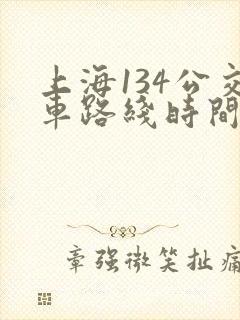 上海134公交
車路綫時間
章强微笑扯痛